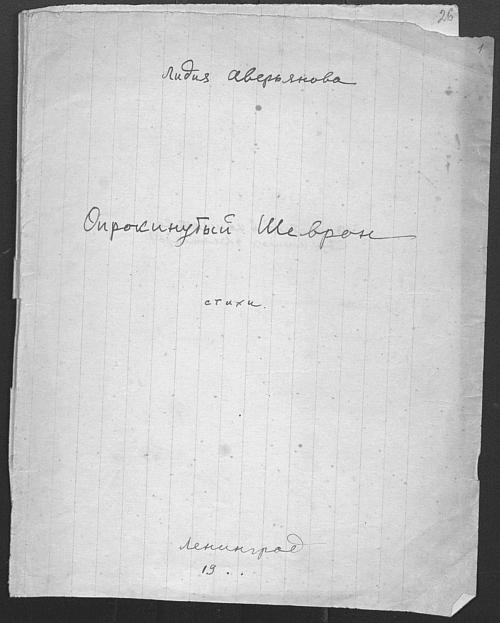 26
1
Лидия Аверьянова
Опрокинутый Шеврон
стихи.
Ленинград
19..